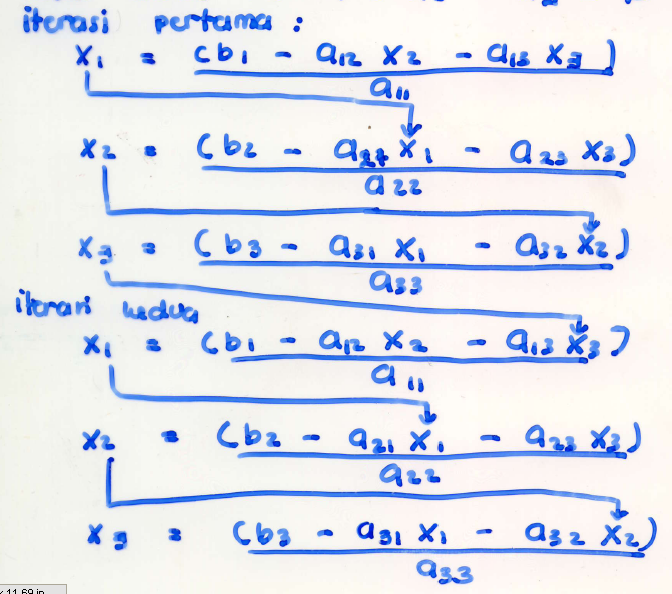 iterasi pertama :
x₁ = (b₁ - a₁₂ x₂ - a₁₃ x₃) / a₁₁
x₂ = (b₂ - a₂₁ x₁ - a₂₃ x₃) / a₂₂
x₃ = (b₃ - a₃₁ x₁ - a₃₂ x₂) / a₃₃
iterasi kedua
x₁ = (b₁ - a₁₂ x₂ - a₁₃ x₃) / a₁₁
x₂ = (b₂ - a₂₁ x₁ - a₂₃ x₃) / a₂₂
x₃ = (b₃ - a₃₁ x₁ - a₃₂ x₂) / a₃₃
11.69 in